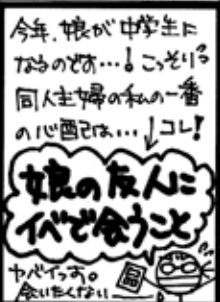 今年、娘が中学生に
なるのです…! こっそり
同人主婦の私の一番
の心配は…↓コレ!
娘の友人に
イベで会うこと
ヤバイっす。
会いたくないー
同